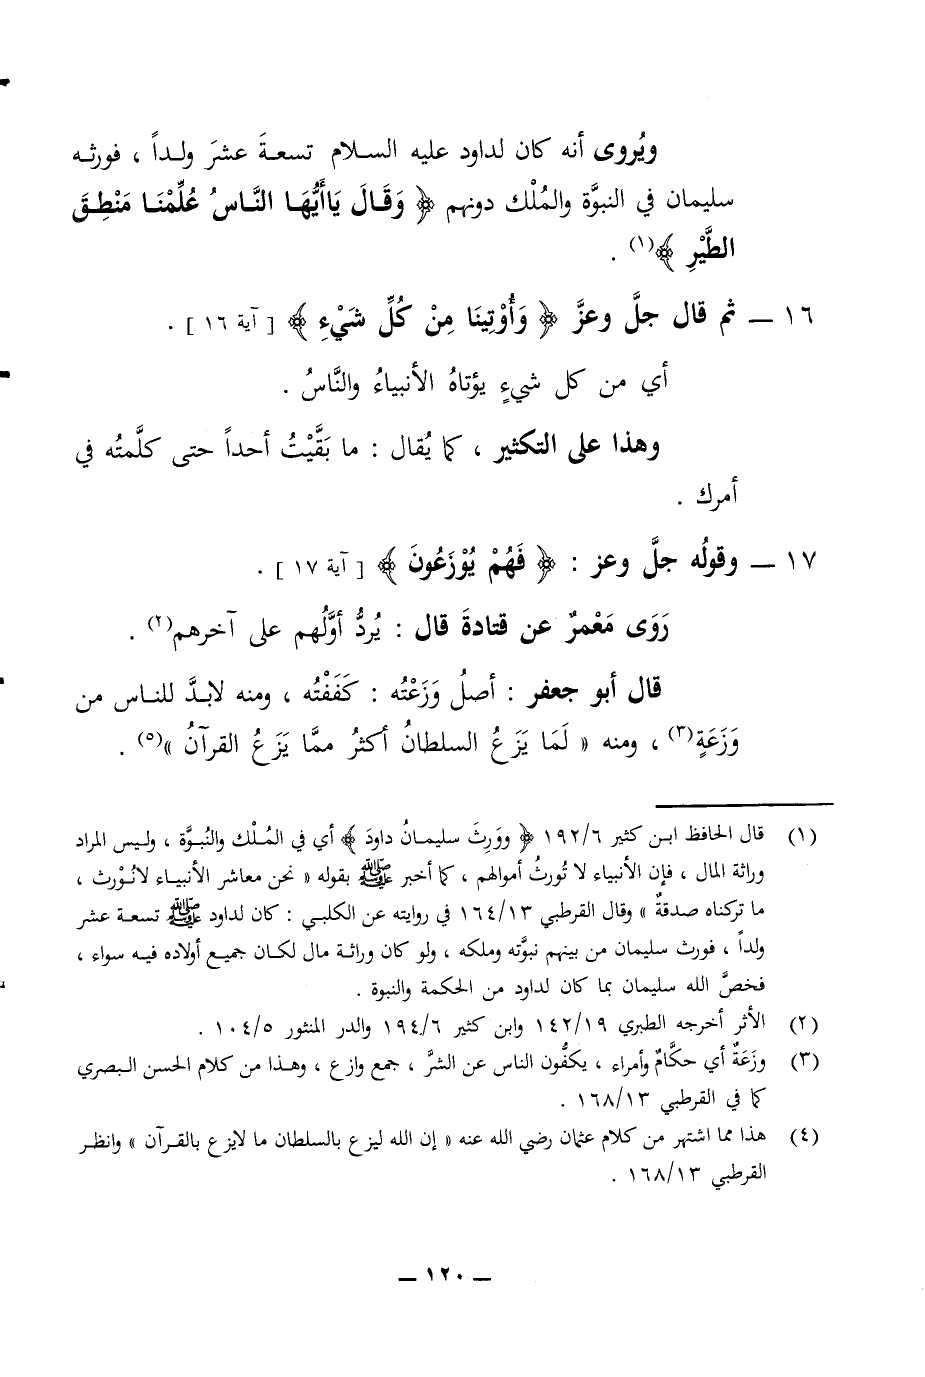 ويُروى أنه كان لداود عليه السلام تسعةَ عشرَ ولداً ، فورثه
سليمان في النبوَّة والمُلْك دونهم ﴿ وَقَالَ يَاأَيُّهَا النَّاسُ عُلِّمْنَا مَنْطِقَ
الطَّيْرِ ﴾(١) .
١٦ ــ ثم قال جلَّ وعزَّ ﴿ وَأُوْتِينَا مِنْ كُلِّ شَيْءِ ﴾ [ آية ١٦ ] .
أي من كل شيءٍ يؤتاهُ الأنبياءُ والنَّاسُ .
وهذا على التكثير ، كما يُقال : ما بَقَّيْتُ أحداً حتى كلَّمتُه في
أمرك .
١٧ ــ وقولُه جلَّ وعز : ﴿ فَهُمْ يُوْزَعُونَ ﴾ [ آية ١٧ ] .
رَوَى مَعْمرٌ عن قتادةَ قال : يُردُّ أوَّلُهم على آخرهم(٢) .
قال أبو جعفر : أصلُ وَزَعْتُه : كَفَفْتُه ، ومنه لابدَّ للناس من
وَزَعَةٍ(٣) ، ومنه « لَمَا يَزَعُ السلطانُ أكثرُ ممَّا يَزَعُ القرآنُ »(٥) .
(١) قال الحافظ ابن كثير ١٩٢/٦ ﴿ ووَرِثَ سليمانُ داودَ ﴾ أي في المُلْك والنُبوَّة ، وليس المراد
وراثة المال ، فإن الأنبياء لا تُورثُ أموالهم ، كما أخبر ﷺ بقوله « نحن معاشر الأنبياء لانُوْرث ،
ما تركناه صدقةٌ » وقال القرطبي ١٦٤/١٣ في روايته عن الكلبي : كان لداود ﷺ تسعة عشر
ولداً ، فورث سليمان من بينهم نبوَّته وملكه ، ولو كان وراثة مال لكان جميع أولاده فيه سواء ،
فخصَّ الله سليمان بما كان لداود من الحكمة والنبوة .
(٢) الأثر أخرجه الطبري ١٤٢/١٩ وابن كثير ١٩٤/٦ والدر المنثور ١٠٤/٥ .
(٣) وزَعَةٌ أي حكَّامٌ وأمراء ، يكفُّون الناس عن الشرَّ ، جمع وازع ، وهذا من كلام الحسن البصري
كما في القرطبي ١٦٨/١٣ .
(٤) هذا مما اشتهر من كلام عثمان رضي الله عنه « إن الله ليزع بالسلطان ما لايزع بالقرآن » وانظر
القرطبي ١٦٨/١٣ .
ــ ١٢٠ ــ